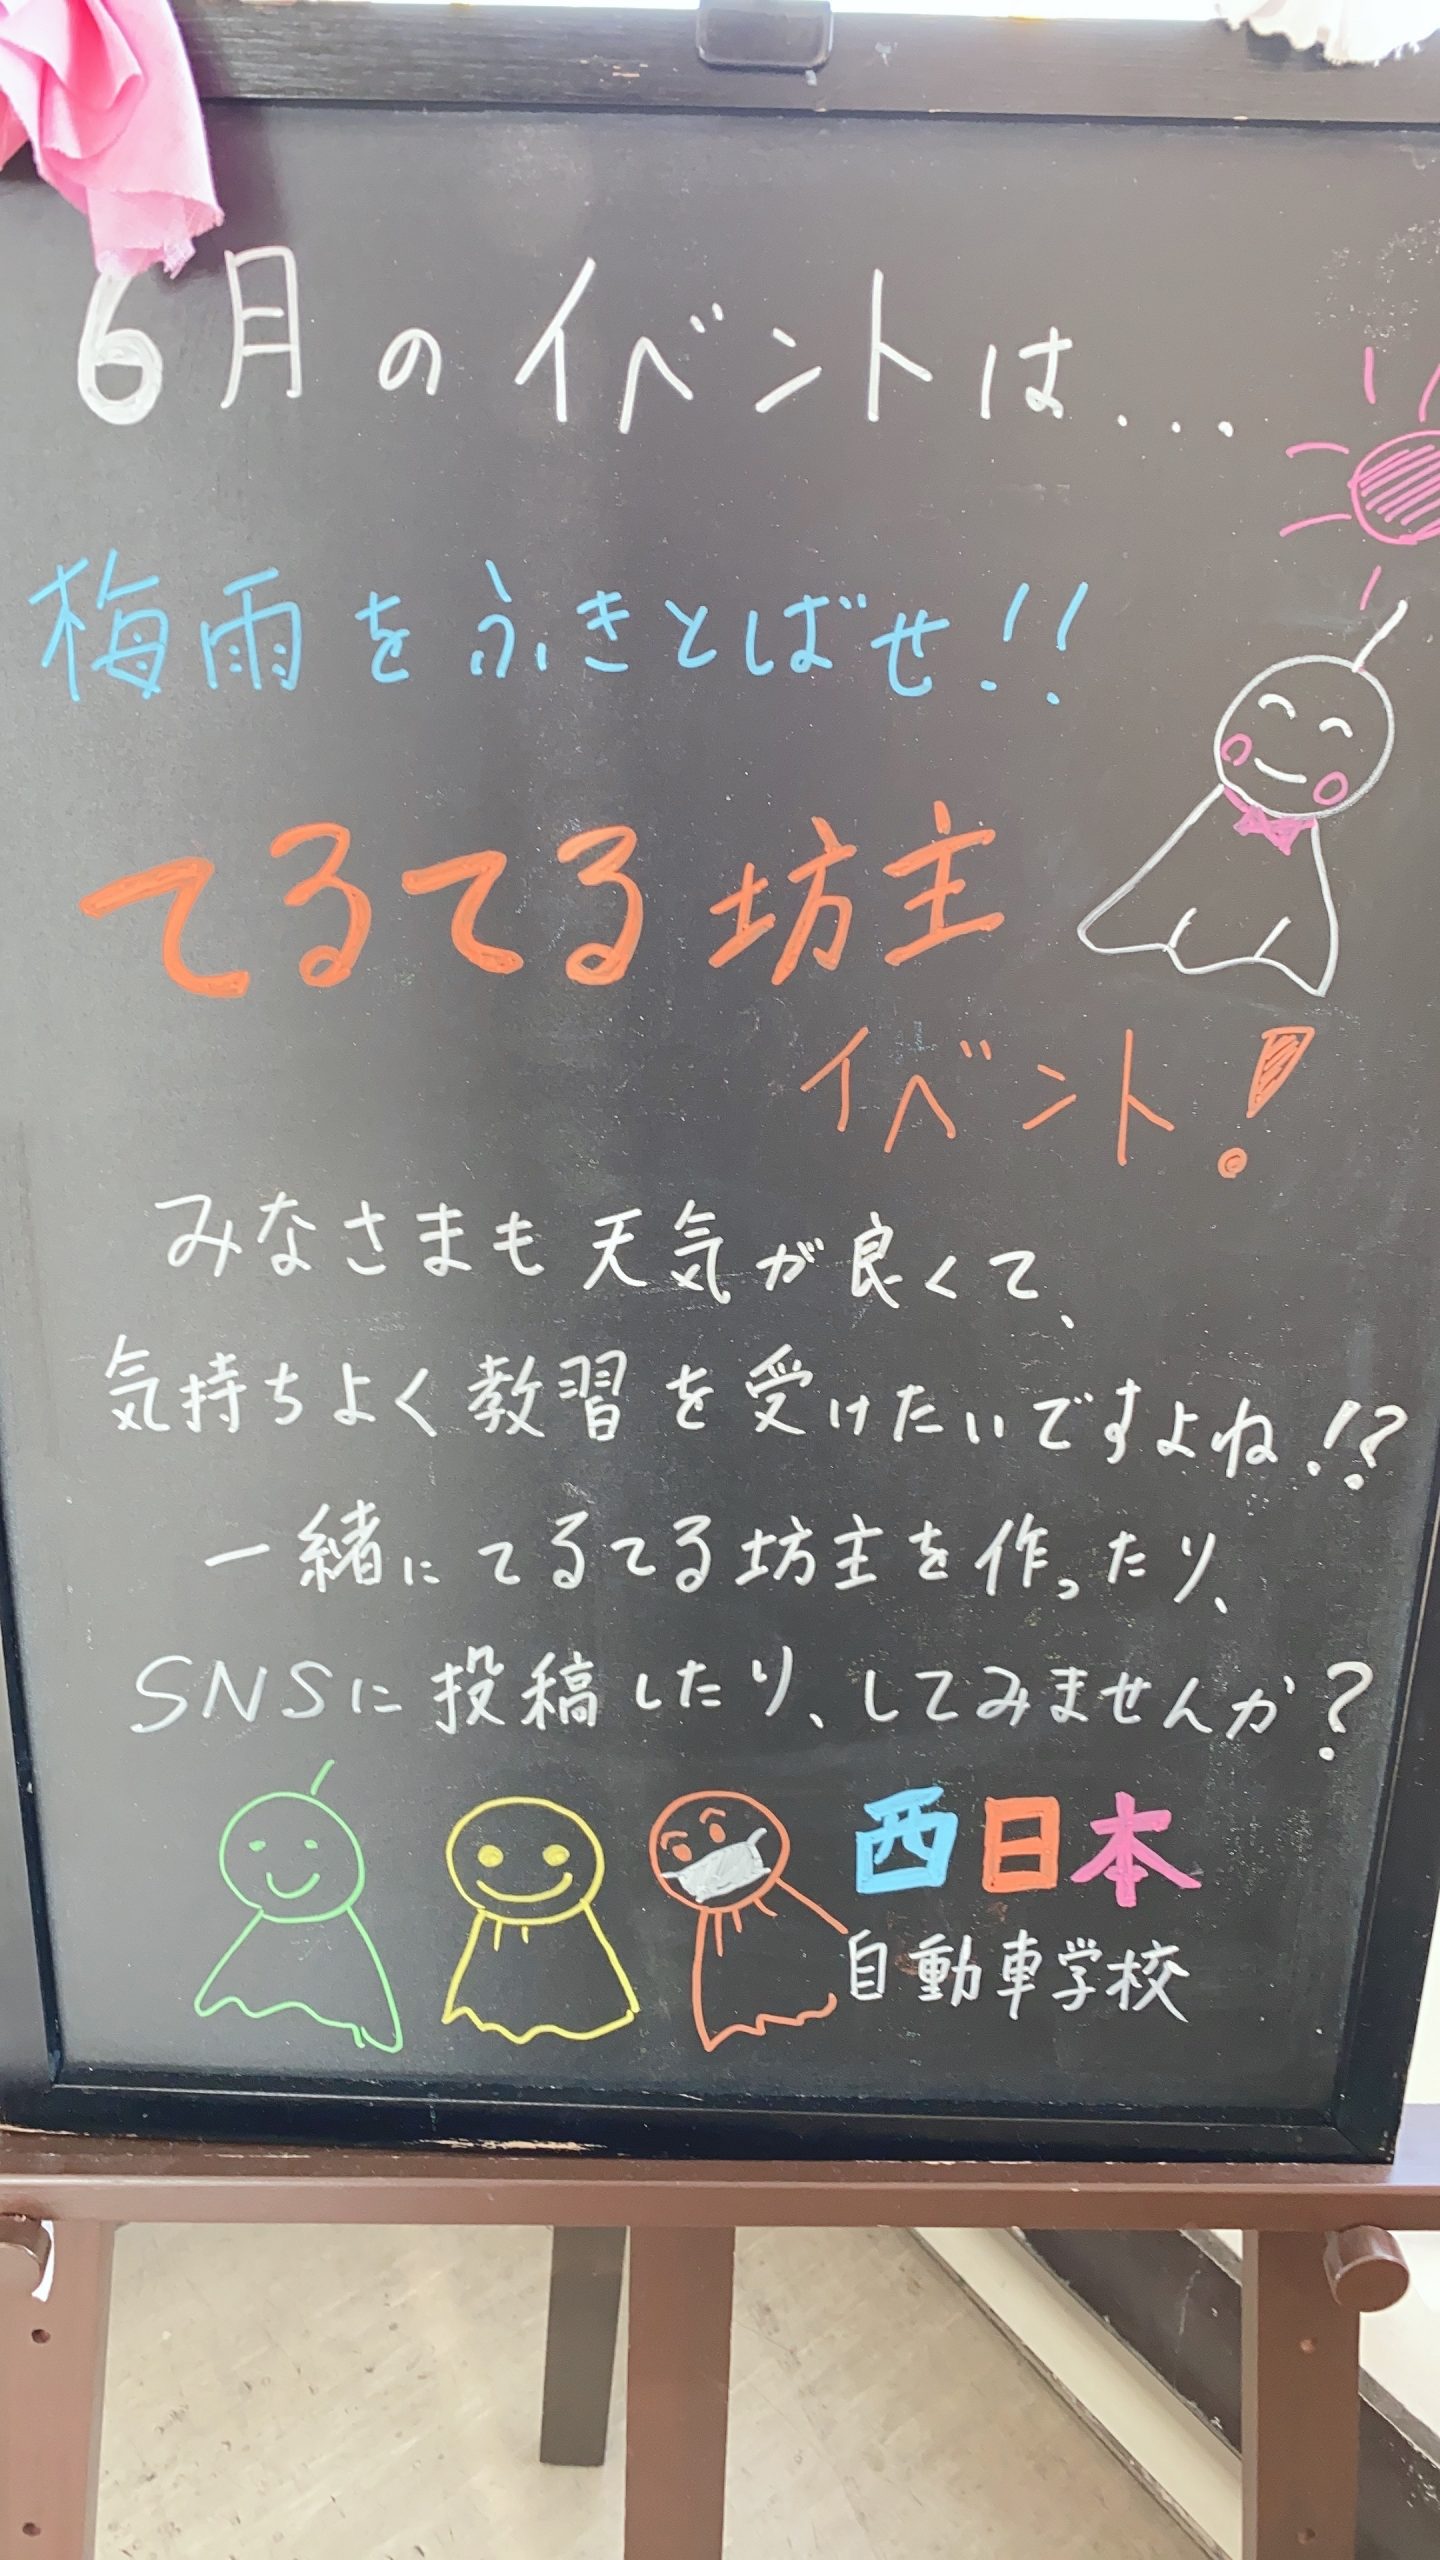 6月のイベントは...
梅雨をふきとばせ!!
てるてる坊主
イベント!
みなさまも天気が良くて、
気持ちよく教習を受けたいですよね!?
一緒にてるてる坊主を作ったり、
SNSに投稿したり、してみませんか?
西日本
自動車学校